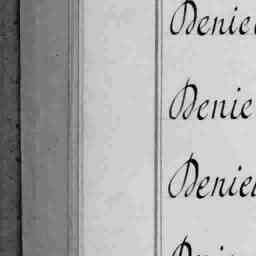 Denied
Denie
Denied